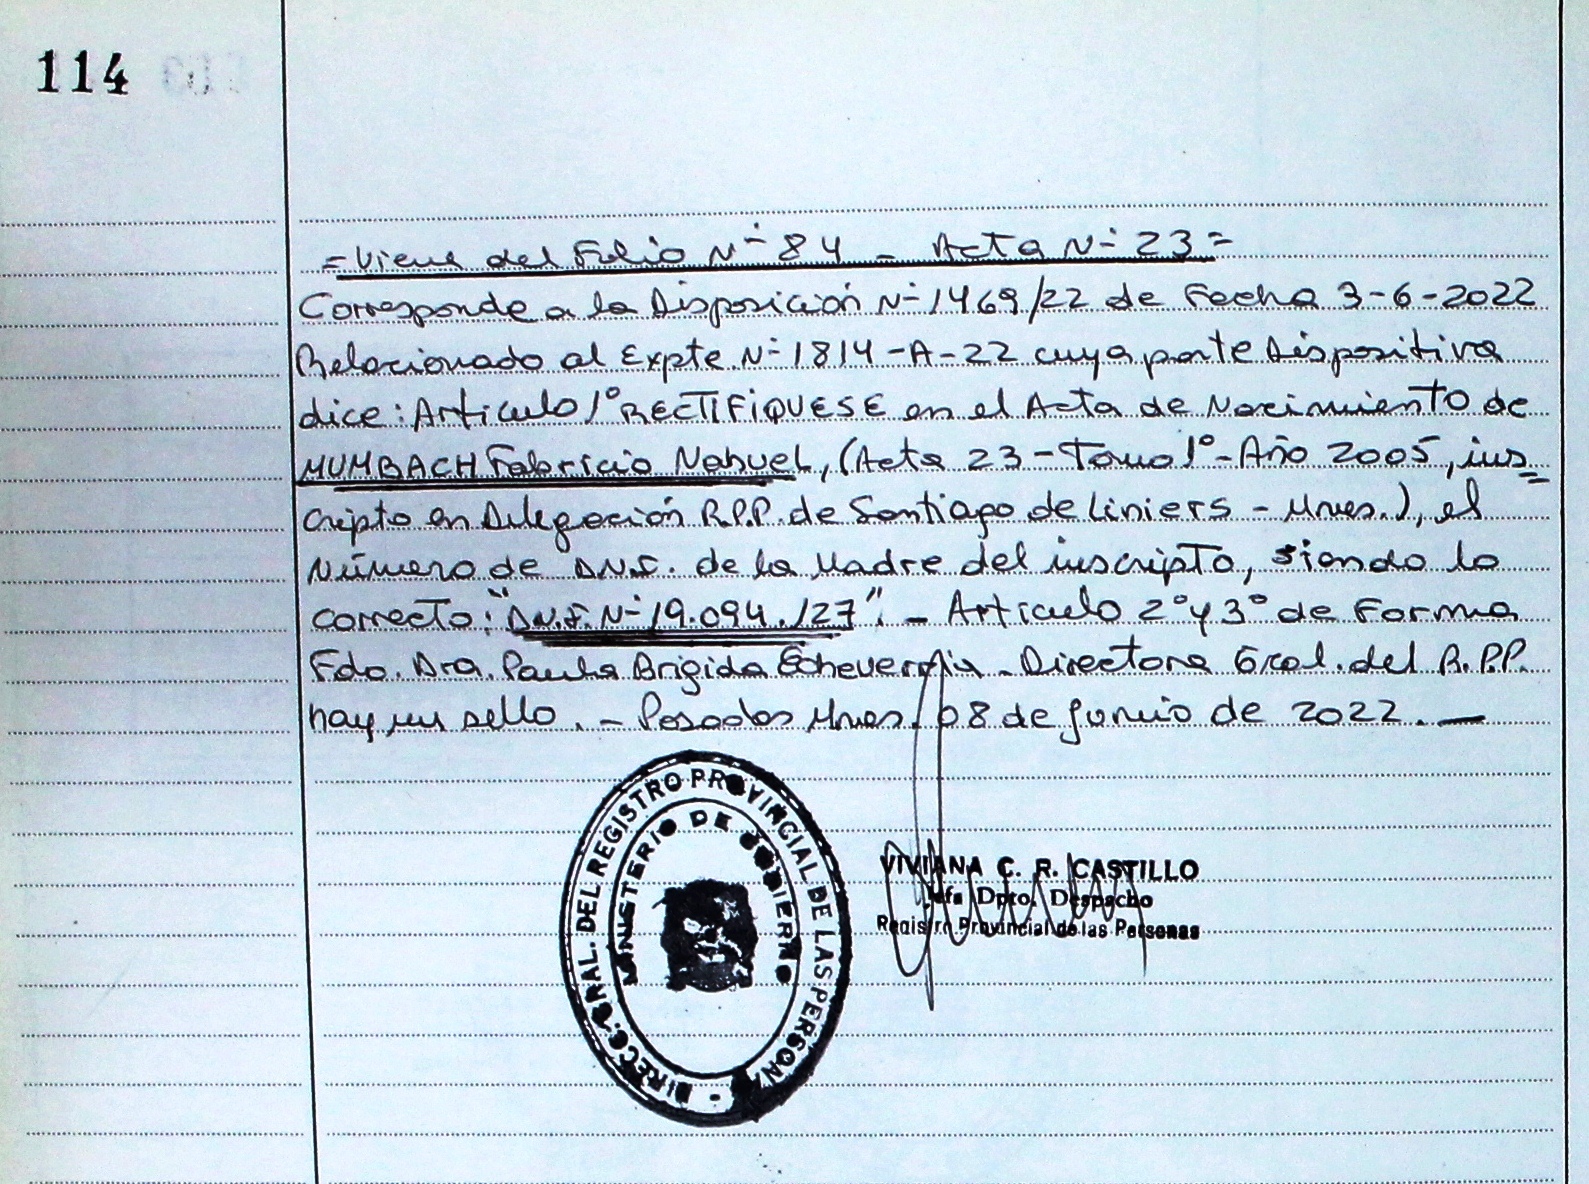 114
= Viene del Folio Nº 84 - Acta Nº 23 =
Corresponde a la Disposición Nº 1469/22 de Fecha 3-6-2022
Relacionado al Expte. Nº 1814-A-22 cuya parte Dispositiva
dice: Artículo 1º RECTIFIQUESE en el Acta de Nacimiento de
MUMBACH Fabricio Nahuel, (Acta 23 - Tomo 1º - Año 2005, ins=
cripto en Delegación R.P.P. de Santiago de Liniers - Mnes.), el
Número de D.N.I. de la Madre del inscripto, siendo lo
correcto: "D.N.I. Nº 19.094.127". - Artículo 2º y 3º de Forma
Fdo. Dra. Paula Brigida Echeverría - Directora Gral. del R.P.P.
hay un sello. - Posadas Mnes. 08 de Junio de 2022. —
DIRECC. GRAL. DEL REGISTRO PROVINCIAL DE LAS PERSONAS -
MINISTERIO DE GOBIERNO
VIVIANA C. R. CASTILLO
Jefa Dpto. Despacho
Registro Provincial de las Personas